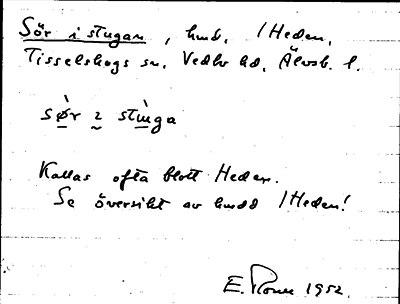 Sör i stugan, hmd. /Heden,
Tisselskogs sn. Vedbo hd, Älvsb. l.
sø̀r ı stùga
Kallas ofta blott Heden.
Se översikt av hmdd /Heden!
E. 1952.